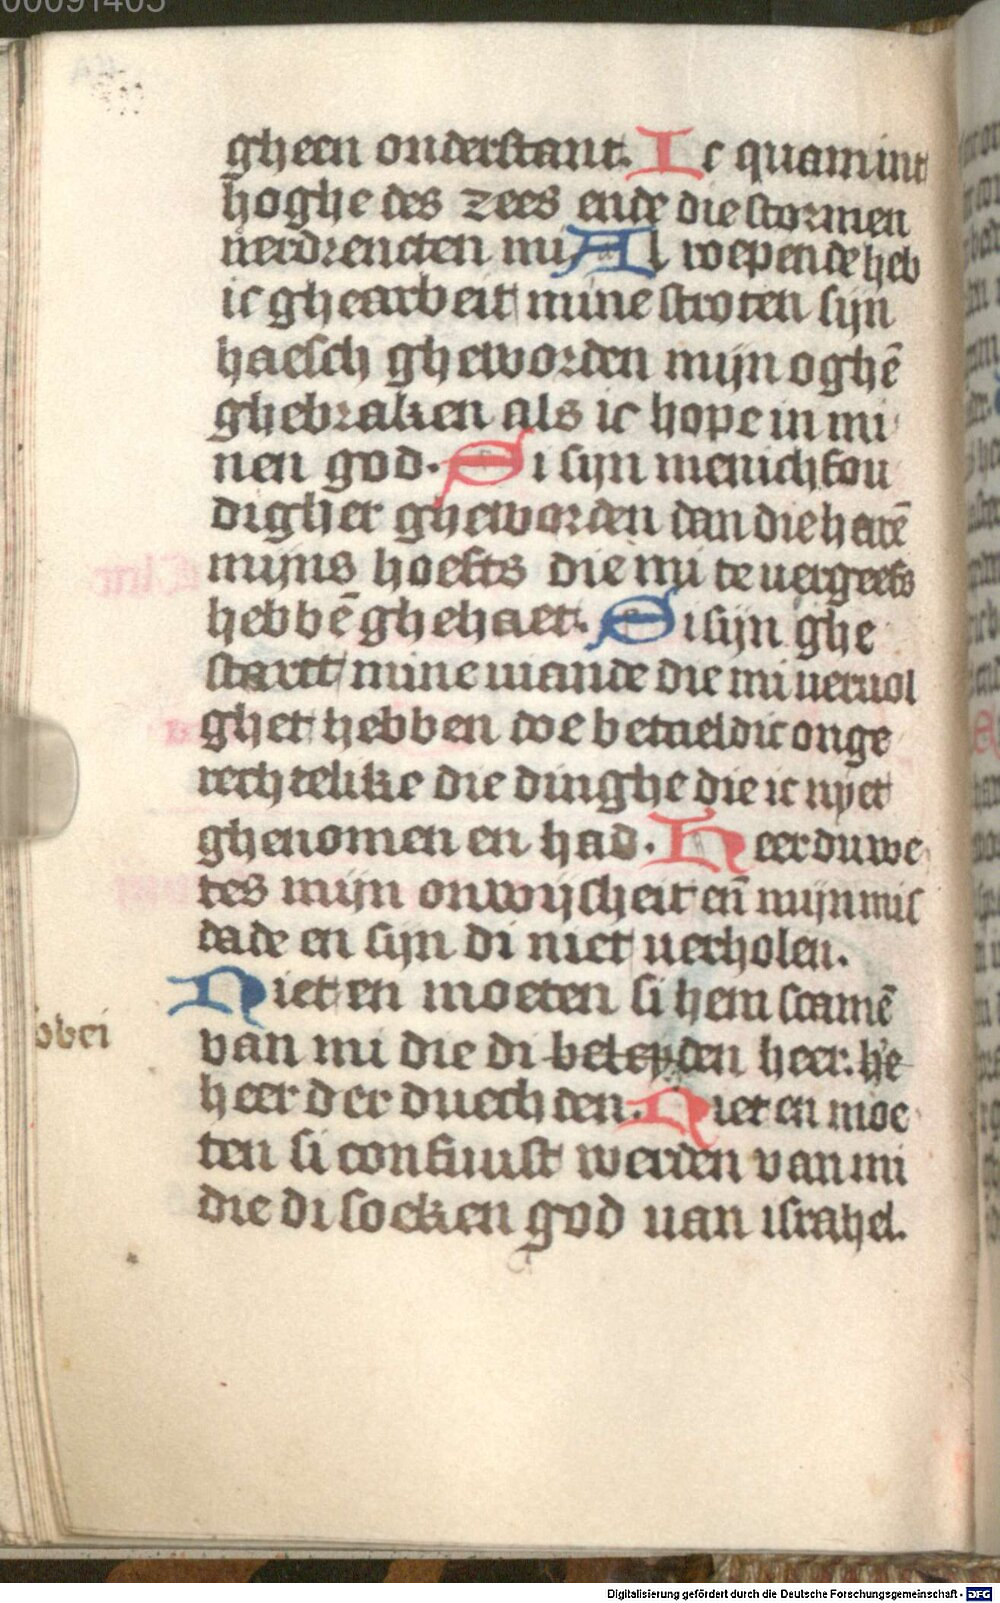 00091405
gheen onderstant. Ic quam int
hoghe des zees ende die stormen
uerdrencten mi Al wepende heb
ic ghearbeit mine stroten sijn
haesch gheworden mijn oghē
ghebraken als ic hope in mi
nen god. Si sijn menichfou
digher gheworden dan die harē
mijns hoefts die mi te uergeefs
hebbē ghehaet. Si sijn ghe
starct mine uiande die mi ueruol
ghet hebben doe betaeldic onge
rechtelike die dinghe die ic nyet
ghenomen en had. Heer du we
tes mijn onwijsheit en̄ mijn mis
dade en sijn di niet uerholen.
Niet en moeten si hem scamē
van mi die di beleyden heer. he
bbei
heer der duechden. Niet en moe
ten si confuust werden van mi
die di soeken god uan israhel.
Digitalisierung gefördert durch die Deutsche Forschungsgemeinschaft - DFG